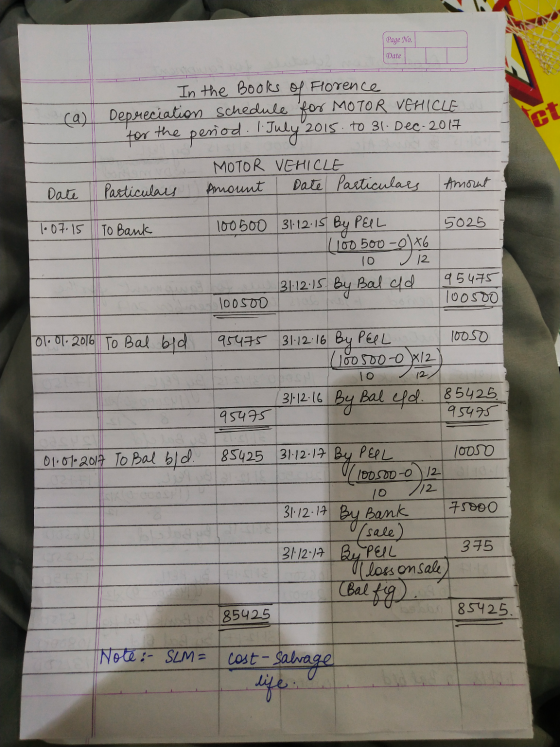 Page No.
Date
In the Books of Florence
(a) Depreciation schedule for MOTOR VEHICLE
for the period . 1 July 2015 . to 31. Dec. 2017
MOTOR VEHICLE
Date Particulars Amount Date Particulars Amount
1.07.15 To Bank 100500 31.12.15 By P&L 5025
(100500-0)×6
10 12
31.12.15 By Bal c/d 95475
100500 100500
01.01.2016 To Bal b/d 95475 31.12.16 By P&L 10050
(100500-0)×12
10 12)
31.12.16 By Bal c/d. 85425
95475 95475
01.01.2017 To Bal b/d. 85425 31.12.17 By P&L 10050
(100500-0) 12
10 12
31.12.17 By Bank 75000
(sale)
31.12.17 By P&L 375
(loss on sale)
(Bal fig) .
85425 85425.
Note:- SLM = cost - Salvage
life.